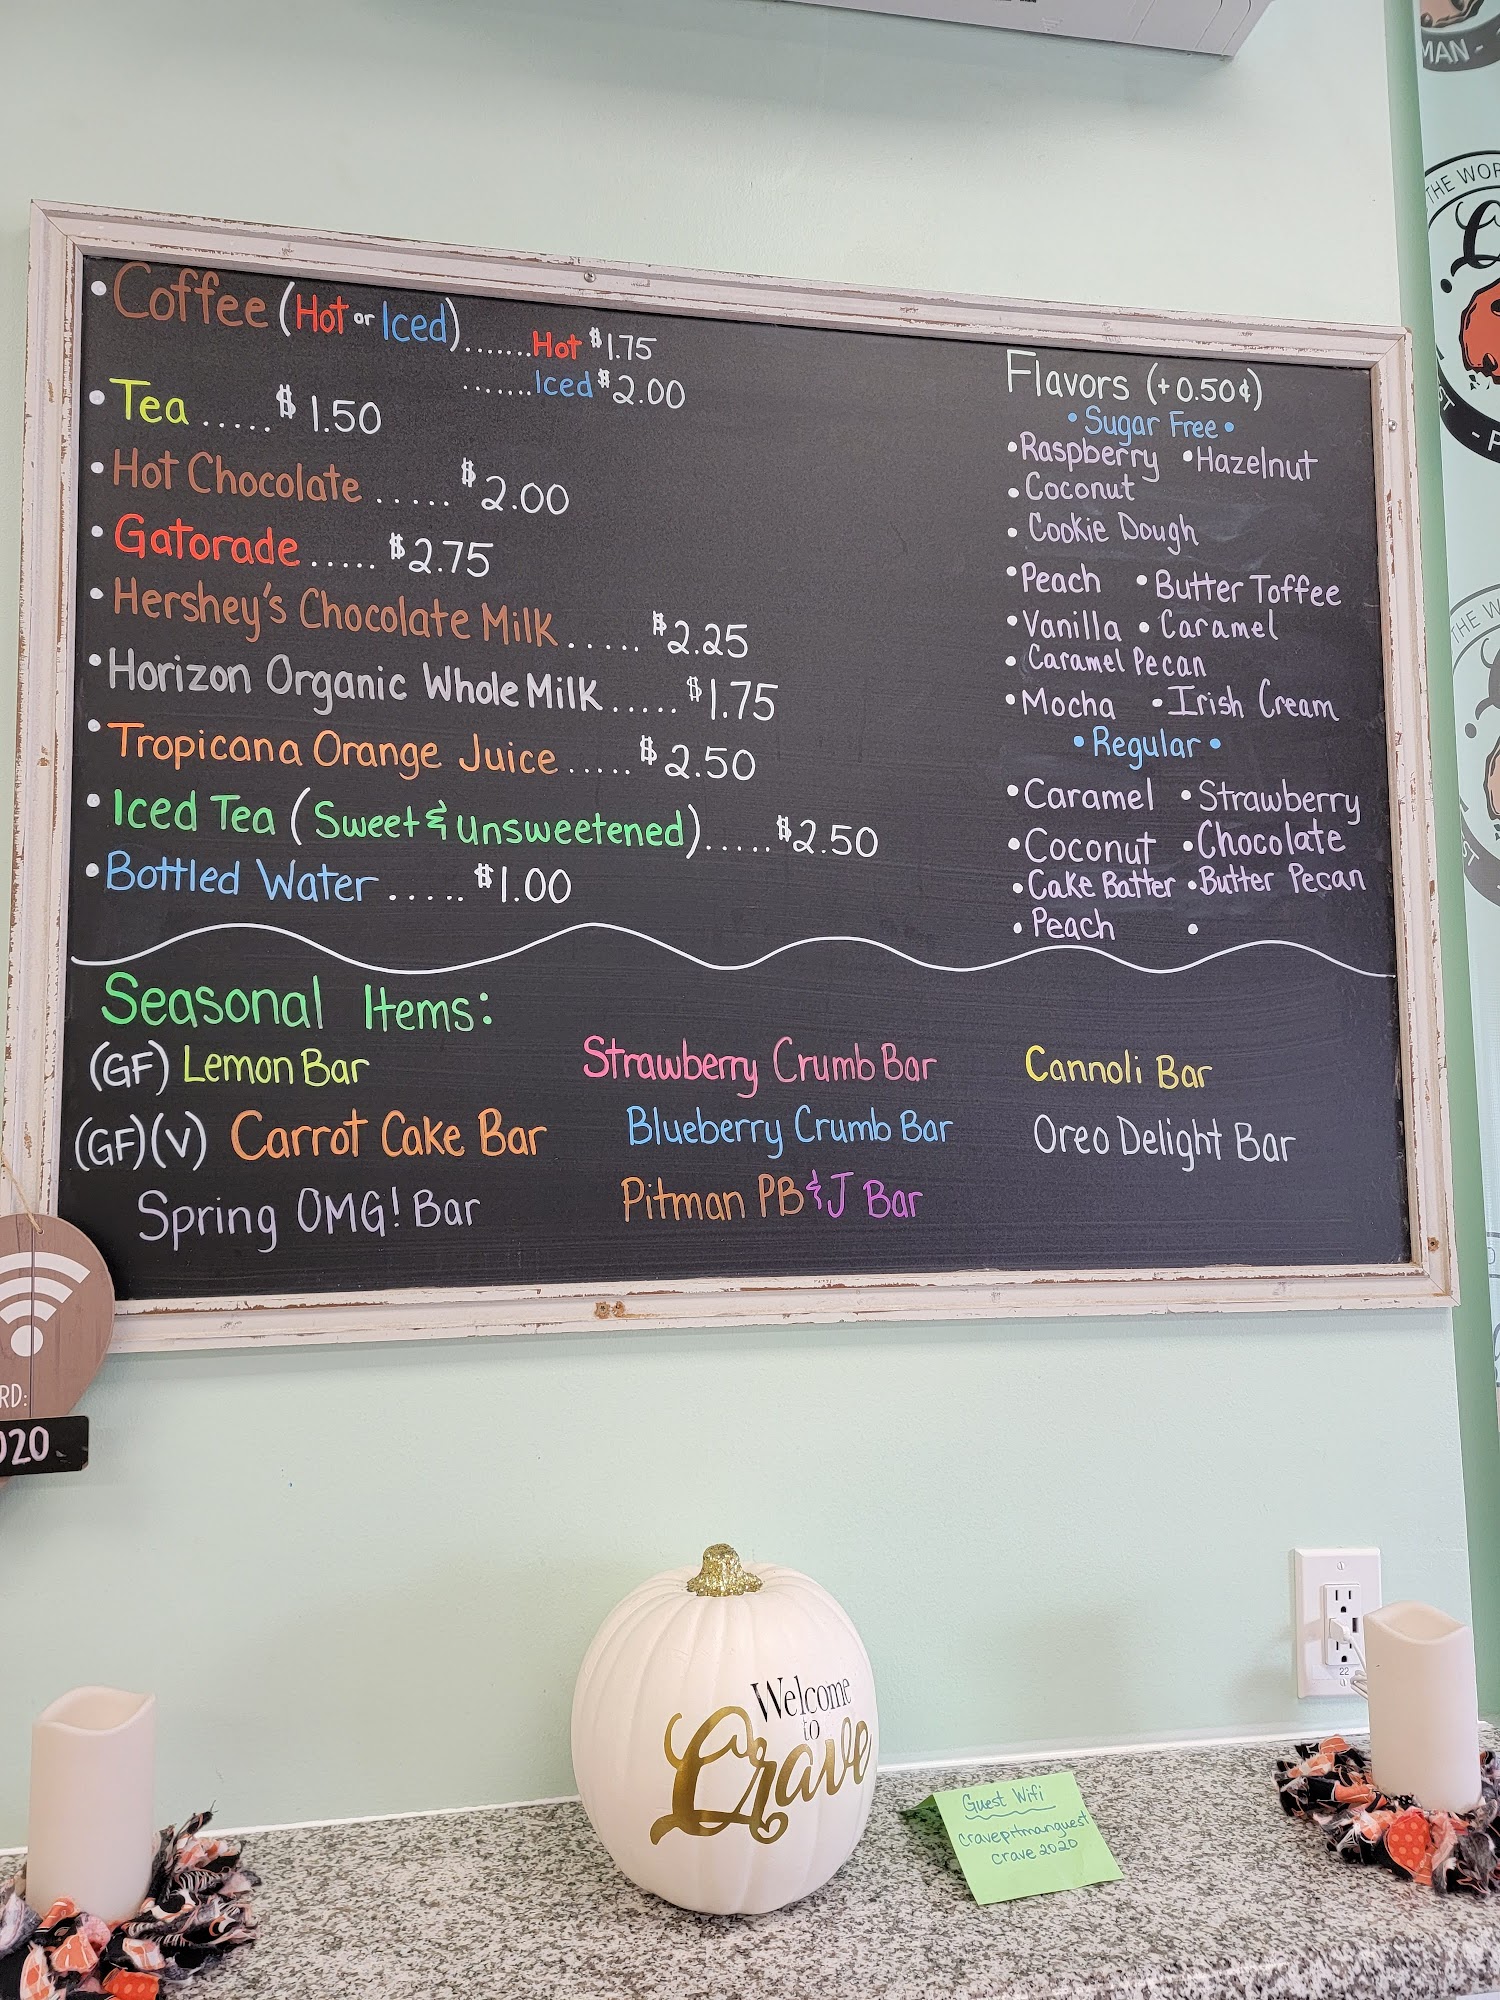 • Coffee (Hot or Iced).......Hot $1.75
.......Iced $2.00
• Tea.....$1.50
• Hot Chocolate.....$2.00
• Gatorade.....$2.75
• Hershey's Chocolate Milk.....$2.25
• Horizon Organic Whole Milk.....$1.75
• Tropicana Orange Juice.....$2.50
• Iced Tea (Sweet & Unsweetened).....$2.50
• Bottled Water.....$1.00
Flavors (+0.50¢)
• Sugar Free •
• Raspberry • Hazelnut
• Coconut
• Cookie Dough
• Peach • Butter Toffee
• Vanilla • Caramel
• Caramel Pecan
• Mocha • Irish Cream
• Regular •
• Caramel • Strawberry
• Coconut • Chocolate
• Cake Batter • Butter Pecan
• Peach •
Seasonal Items:
(GF) Lemon Bar Strawberry Crumb Bar Cannoli Bar
(GF)(V) Carrot Cake Bar Blueberry Crumb Bar Oreo Delight Bar
Spring OMG! Bar Pitman PB&J Bar
RD:
020
Welcome
to
Crave
Guest Wifi
cravepitmanguest
crave2020
22
MAN -
THE WOR
THE W